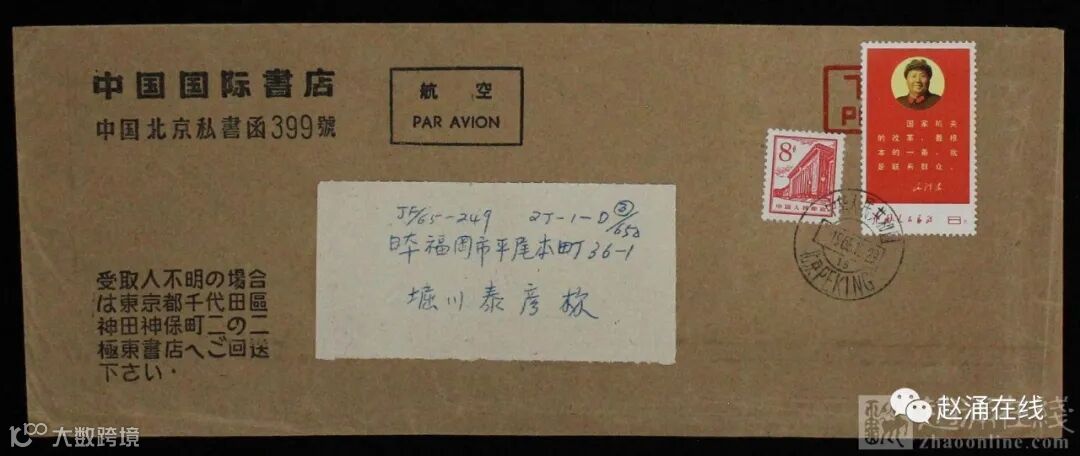 中国国际書店
中国北京私書函399號
航空
PAR AVION
8分
中国人民邮政
国家机关
的改革,最根
本的一条,就
是联系群众。
毛泽东
中国人民邮政
8分
北京PEKING
J5/65-249 2J-1-D
日本福岡市平尾本町36-1
堀川泰彦様
受取人不明の場合
は東京都千代田區
神田神保町二の二
極東書店へご回送
下さい・
大数跨境
赵涌在线
赵涌在线
zhaoonline.com